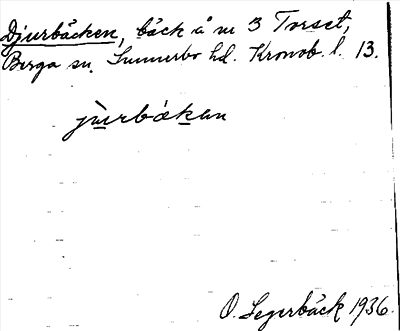 Djurbäcken, bäck å nr 3 Torset,
Berga sn. Sunnerbo hd. Kronob. l. 13.
jùrbäkan
O. Segerbäck 1936.